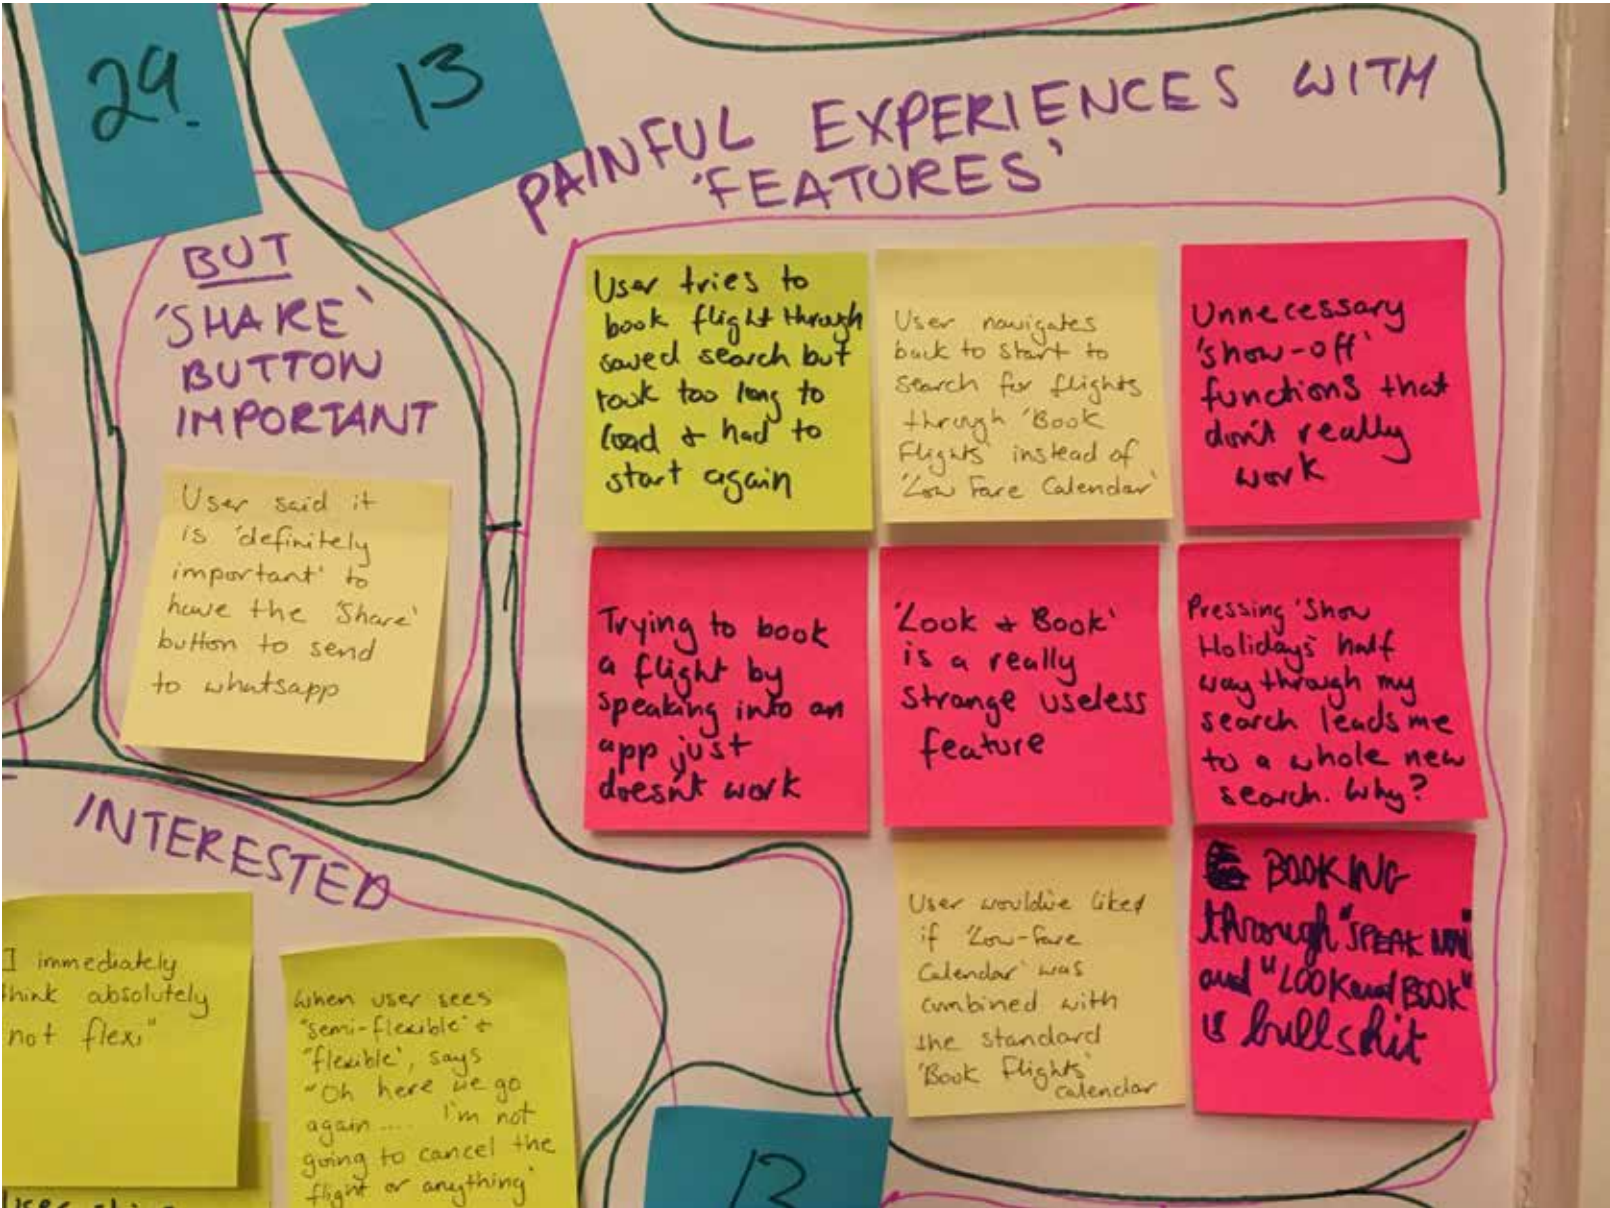 29.
13
PAINFUL EXPERIENCES WITH
'FEATURES'
BUT
'SHARE'
BUTTON
IMPORTANT
User said it
is 'definitely
important' to
have the 'Share'
button to send
to whatsapp
User tries to
book flight through
saved search but
took too long to
load + had to
start again
User navigates
back to start to
search for flights
through 'Book
Flights' instead of
'Low Fare Calendar'
Unnecessary
'show-off'
functions that
don't really
work
Trying to book
a flight by
speaking into an
app just
doesn't work
'Look + Book'
is a really
strange useless
feature
Pressing 'Show
Holidays' half
way through my
search leads me
to a whole new
search. Why?
User would've liked
if 'Low-Fare
Calendar' was
combined with
the standard
'Book Flights'
calendar
BOOKING
through "SPEAK
and "LOOK and BOOK"
is bullshit
INTERESTED
I immediately
think absolutely
not flexi"
When user sees
"semi-flexible" +
"flexible", says
"Oh here we go
again.... I'm not
going to cancel the
flight or anything"